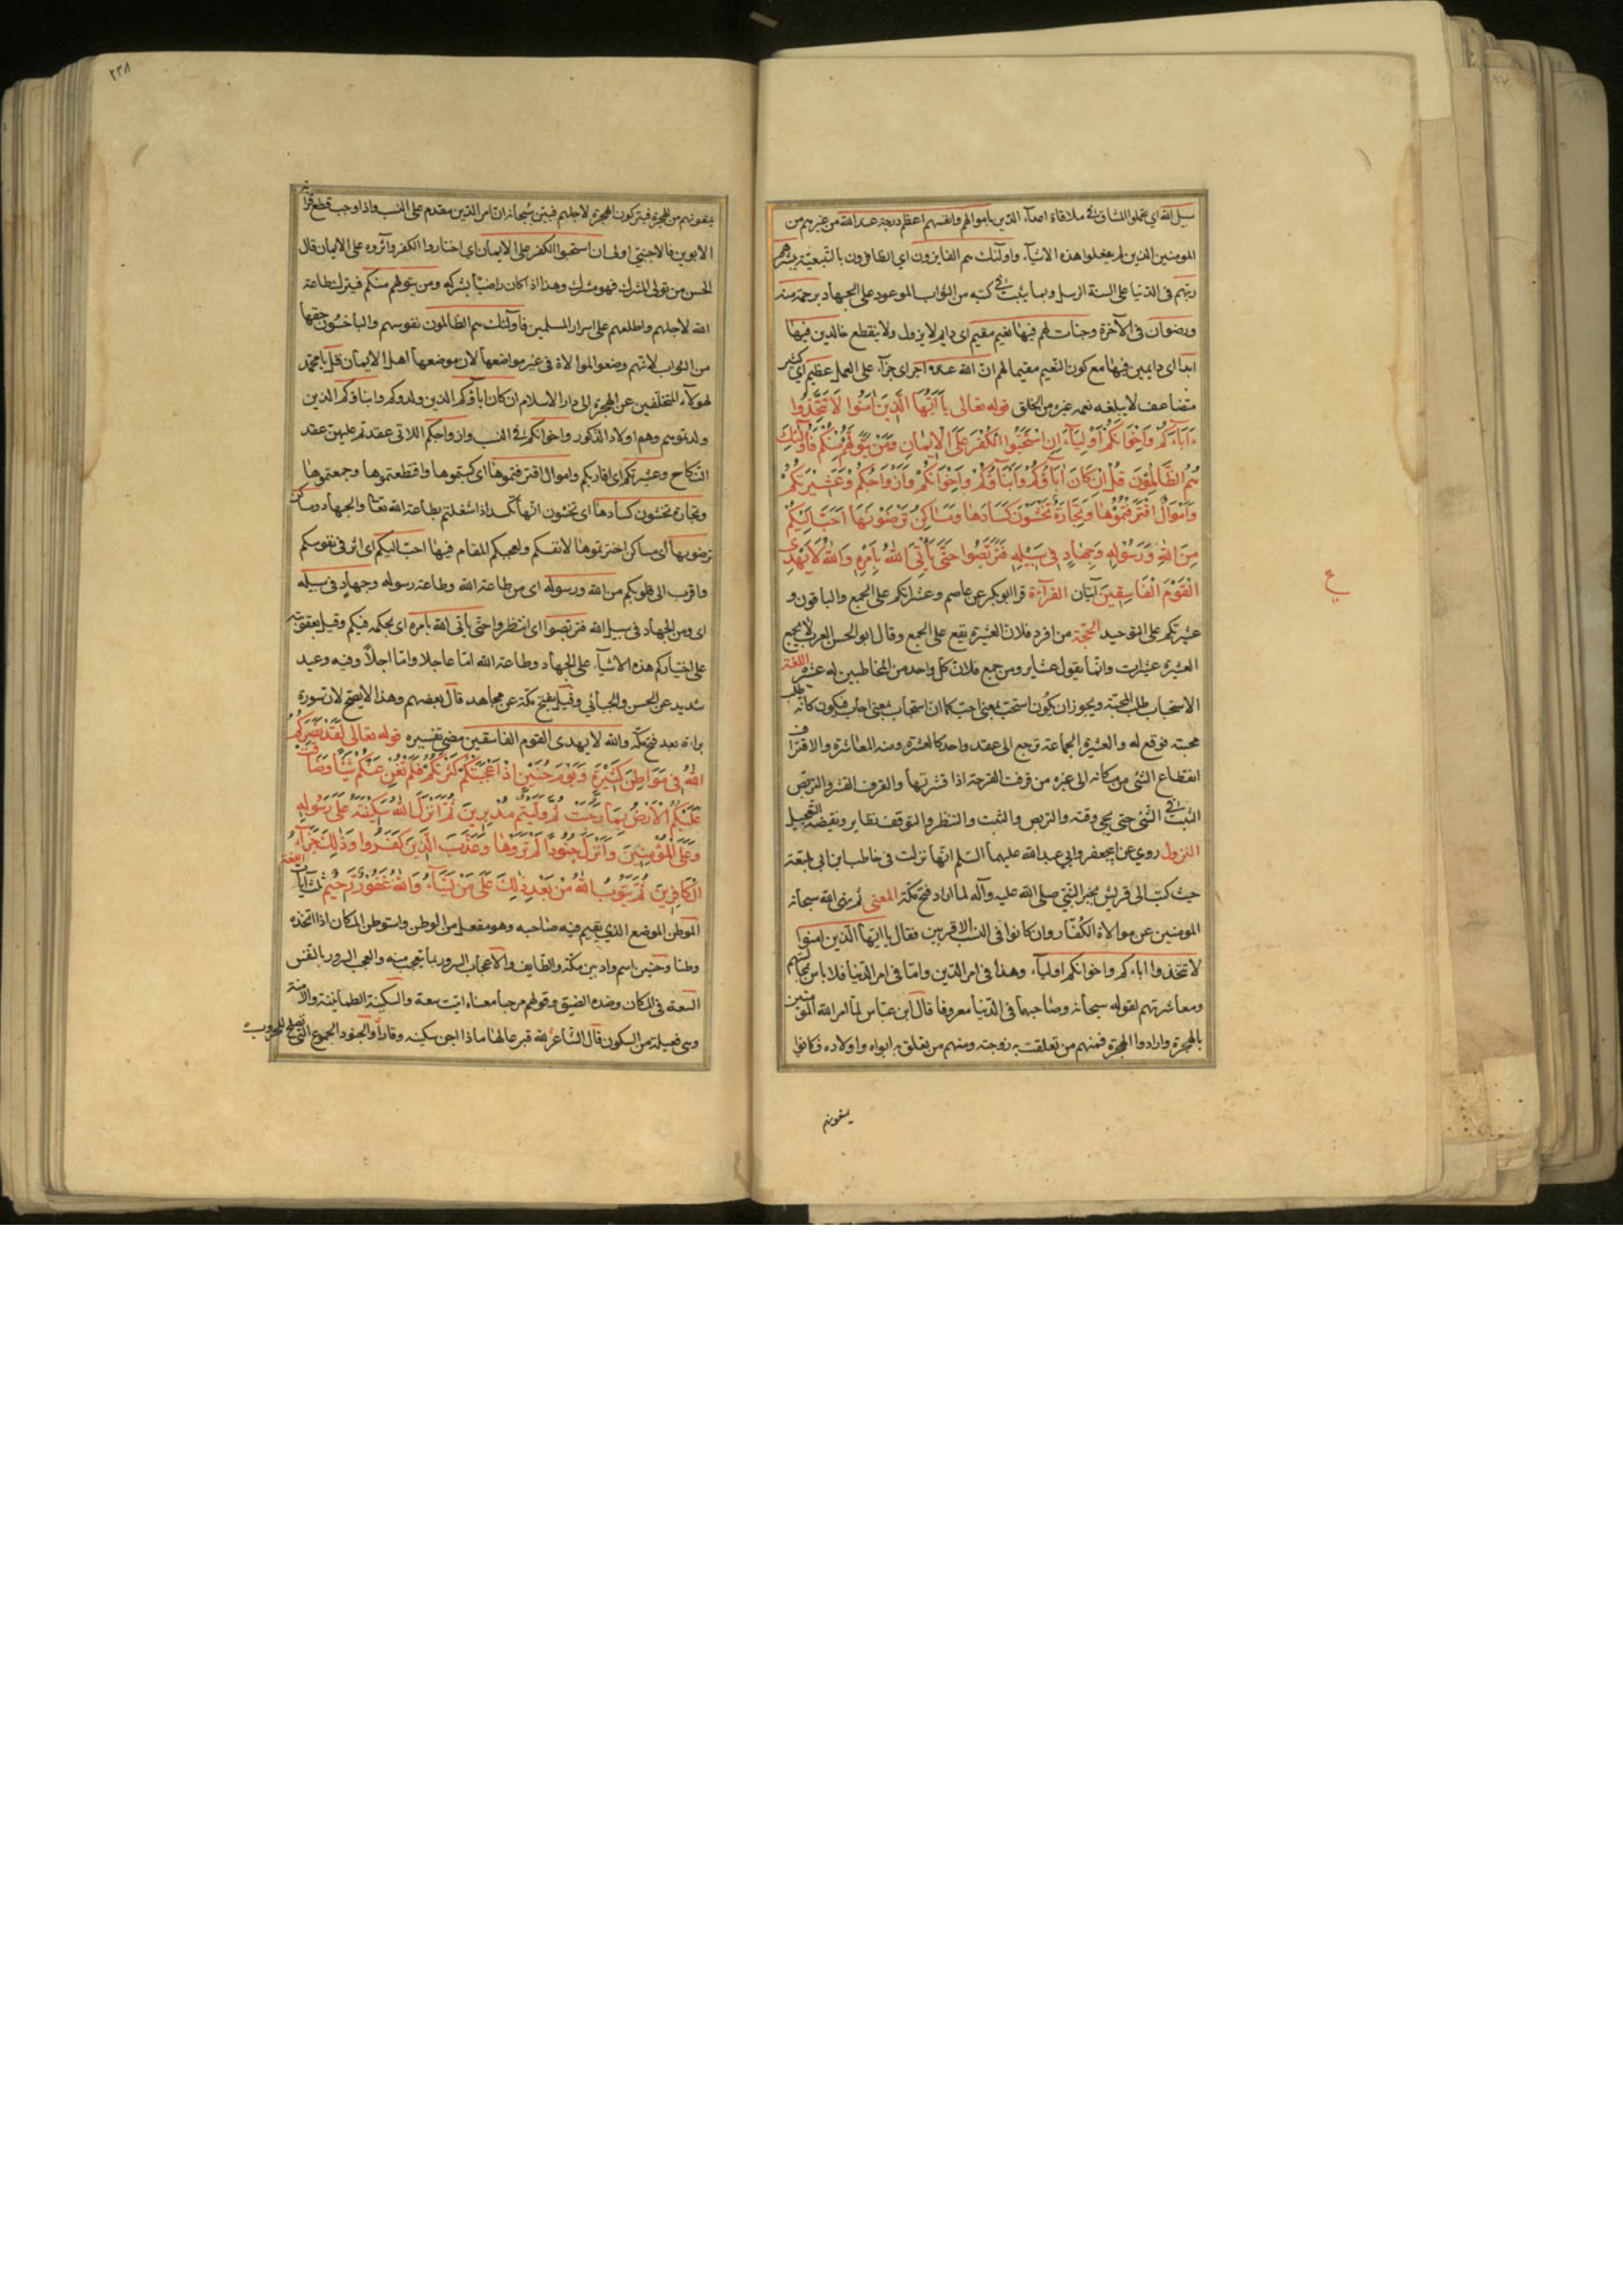 سبيل الله اي تحملوا المشاق في ملاقاة اعداء الدين باموالهم وانفسهم اعظم درجة عند الله من غيرهم من
المومنين الذين لم يفعلوا هذه الاشياء واولئك هم الفايزون اي الظافرون بالبغية يبشرهم
ربهم في الدنيا على السنة الرسل وبما يثبت في كتبه من الثواب الموعود على الجهاد برحمة منه
ورضوان في الآخرة وجنات لهم فيها نعيم مقيم اي دايم لا يزول ولا ينقطع خالدين فيها
ابدا اي دايمين فيها مع كون النعيم مقيما لهم ان الله عنده اجر اي جزاء على العمل عظيم اي كثير
متضاعف لا يبلغه نعمه غيره من الخلق قوله تعالى يا ايها الذين امنوا لا تتخذوا
ءاباءكم واخوانكم اولياء ان استحبوا الكفر على الايمان ومن يتولهم منكم فاولئك
هم الظالمون قل ان كان اباؤكم وابناؤكم واخوانكم وازواجكم وعشيرتكم
واموال اقترفتموها وتجارة تخشون كسادها ومساكن ترضونها احب اليكم
من الله ورسوله وجهاد في سبيله فتربصوا حتى ياتي الله بامره والله لا يهدي
القوم الفاسقين آيتان القرآءة قرا ابو بكر عن عاصم وعشيراتكم على الجمع والباقون و
عشيرتكم على التوحيد الحجّة من افرد فلان العشيرة يقع على الجمع وقال ابو الحسن العرب لا يجمع
العشيرة عشيرات وانما يقول عشاير ومن جمع فلان كل واحد من المخاطبين له عشيرة اللغة
الاستحباب طلب المحبة ويجوز ان يكون استحب بمعنى احب كما ان استجاب بمعنى اجاب فيكون كانه طلب
محبته فوقع له والعشيرة الجماعة ترجع الى عقد واحد كالعشرة ومنه المعاشرة والاقتراف
اقتطاع الشئ من مكانه الى غيره من قرفت القرحة اذا قشرتها والقرف القشر والتربص
التثبت في الشئ حتى يجي وقته والتربص والتثبت والتنظر والتوقف نظاير ونقيضه التعجيل
النزول روي عن ابي جعفر وابي عبد الله عليهما السلم انها نزلت في حاطب ابن ابي بلتعة
حيث كتب الى قريش يخبر النبي صلى الله عليه وآله لما اراد فتح مكة المعنى ثم نهى الله سبحانه
المومنين عن موالاة الكفار وان كانوا في النسب الاقربين فقال يا ايها الذين امنوا
لا تتخذوا اباءكم واخوانكم اولياء وهذا في امر الدين واما في امر الدنيا فلا باس بمجالستهم
ومعاشرتهم لقوله سبحانه وصاحبهما في الدنيا معروفا قال ابن عباس لما امر الله المومنين
بالهجرة وارادوا الهجرة فمنهم من تعلقت به زوجته ومنهم من يعلق به ابواه واولاده فكانوا
يمنعونهم
ع
٢٣٨
يمنعونهم من الهجرة فيتركون الهجرة لاجلهم فبين سبحانه ان امر الدين مقدم على النسب واذا وجب قطع قرابة
الابوين فالاجنبي اولى ان استحبوا الكفر على الايمان اي اختاروا الكفر وآثروه على الايمان قال
الحسن من تولى المشرك فهو مشرك وهذا اذا كان راضيا بشركه ومن يتولهم منكم فيترك طاعة
الله لاجلهم واطلعهم على اسرار المسلمين فاولئك هم الظالمون نفوسهم والباخسون حقها
من الثواب لانهم وضعوا الموالاة في غير مواضعها لان موضعها اهل الايمان قل يا محمد
لهولاء المتخلفين عن الهجرة الى دار الاسلام ان كان اباؤكم الذين ولدوكم وابناؤكم الذين
ولدتموهم وهم اولاد الذكور واخوانكم في النسب وازواجكم اللاتي عقدتم عليهن عقد
النكاح وعشيرتكم اي اقاربكم واموال اقترفتموها اي كسبتموها واقتطعتموها وجمعتموها
وتجارة تخشون كسادها اي تخشون انها تكسد اذا اشغلتم بطاعة الله تعالى والجهاد ومساكن
ترضونها اي مساكن اخترتموها لانفسكم ويعجبكم المقام فيها احب اليكم اي اثر في نفوسكم
واقرب الى قلوبكم من الله ورسوله اي من طاعة الله وطاعة رسوله وجهاد في سبيله
اي ومن الجهاد في سبيل الله فتربصوا اي انتظروا حتى ياتي الله بامره اي بحكمه فيكم وقيل بعقوبته
على اختياركم هذه الاشياء على الجهاد وطاعة الله اما عاجلا واما اجلا وفيه وعيد
شديد عن الحسن والجبائي وقيل بفتح مكة عن مجاهد قال بعضهم وهذا لا يصح لان سورة
براءة بعد فتح مكة والله لا يهدي القوم الفاسقين مضى تفسيره قوله تعالى لقد نصركم
الله في مواطن كثيرة ويوم حنين اذ اعجبتكم كثرتكم فلم تغن عنكم شيئا وضاقت
عليكم الارض بما رحبت ثم وليتم مدبرين ثم انزل الله سكينته على رسوله
وعلى المؤمنين وانزل جنودا لم تروها وعذب الذين كفروا وذلك جزاء
الكافرين ثم يتوب الله من بعد ذلك على من يشاء والله غفور رحيم ثلث آيات اللغة
الموطن الموضع الذي يقيم فيه صاحبه وهو مفعل من الوطن واستوطن المكان اذا اتخذه
وطنا وحنين اسم واد بين مكة والطايف والاعجاب السرور بما يتعجب منه والعجب السرور بالنفس
السعة في المكان وضده الضيق وقولهم مرحبا معناه اتيت سعة والسكينة الطمانينة والامنة
وهي فعيلة من السكون قال الشاعر لله قبر غالها ماذا اجن سكينه ووقارا والجنود الجموع التي تصلح للحروب